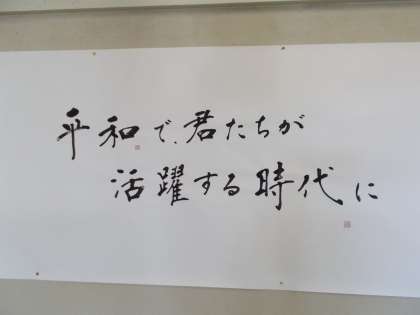 平和で、君たちが
活躍する時代に